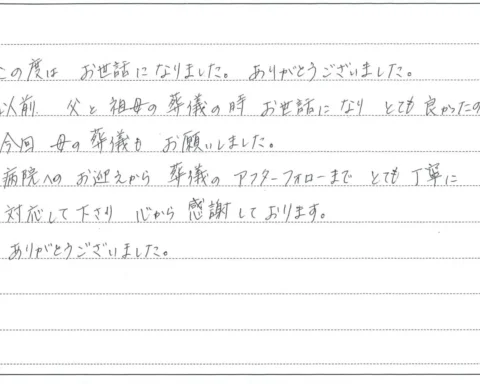 この度は お世話になりました。 ありがとうございました。
以前 父と 祖母の 葬儀の時 お世話になり とても 良かったの
今回 母の 葬儀も お願いしました。
病院への お迎えから 葬儀の アフターフォローまで とても 丁寧に
対応して下さり 心から 感謝しております。
ありがとうございました。